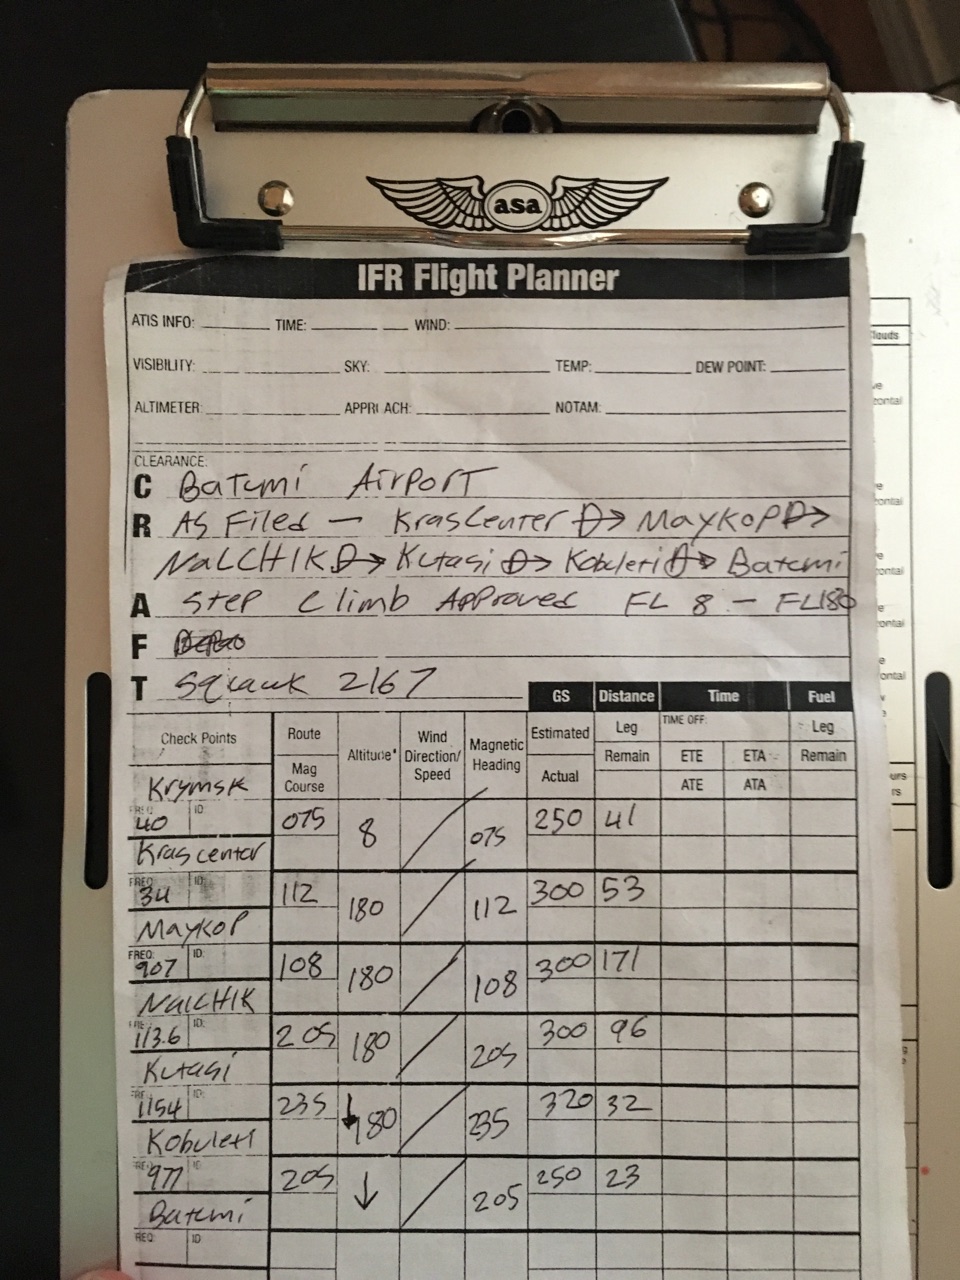 asa
IFR Flight Planner
ATIS INFO: TIME: WIND:
VISIBILITY: SKY: TEMP: DEW POINT:
ALTIMETER: APPRI ACH: NOTAM:
CLEARANCE:
C Batumi Airport
R As Filed — Krascenter → Maykop →
NALCHIK → Kutasi → Kobuleti → Batumi
A Step Climb Approved FL 8 - FL180
F
T Squawk 2167
GS Distance Time Fuel
Check Points Route Mag Course Altitude* Wind Direction/ Speed Magnetic Heading Estimated Actual Leg Remain TIME OFF: ETE ETA ATE ATA Leg Remain
Krymsk
FREQ 40 ID: 075 8 / 075 250 41
Krascenter
FREQ 34 ID: 112 180 / 112 300 53
Maykop
FREQ: 907 ID: 108 180 / 108 300 171
NALCHIK
FRE 113.6 ID: 205 180 / 205 300 96
Kutasi
FRE 1154 ID: 235 ↓180 / 235 320 32
Kobuleti
FREQ 977 ID 205 ↓ / 205 250 23
Batumi
FREQ: ID
louds
ve
zontal
e
ontal
ontal
e
ontal
e
ontal
ours
rs